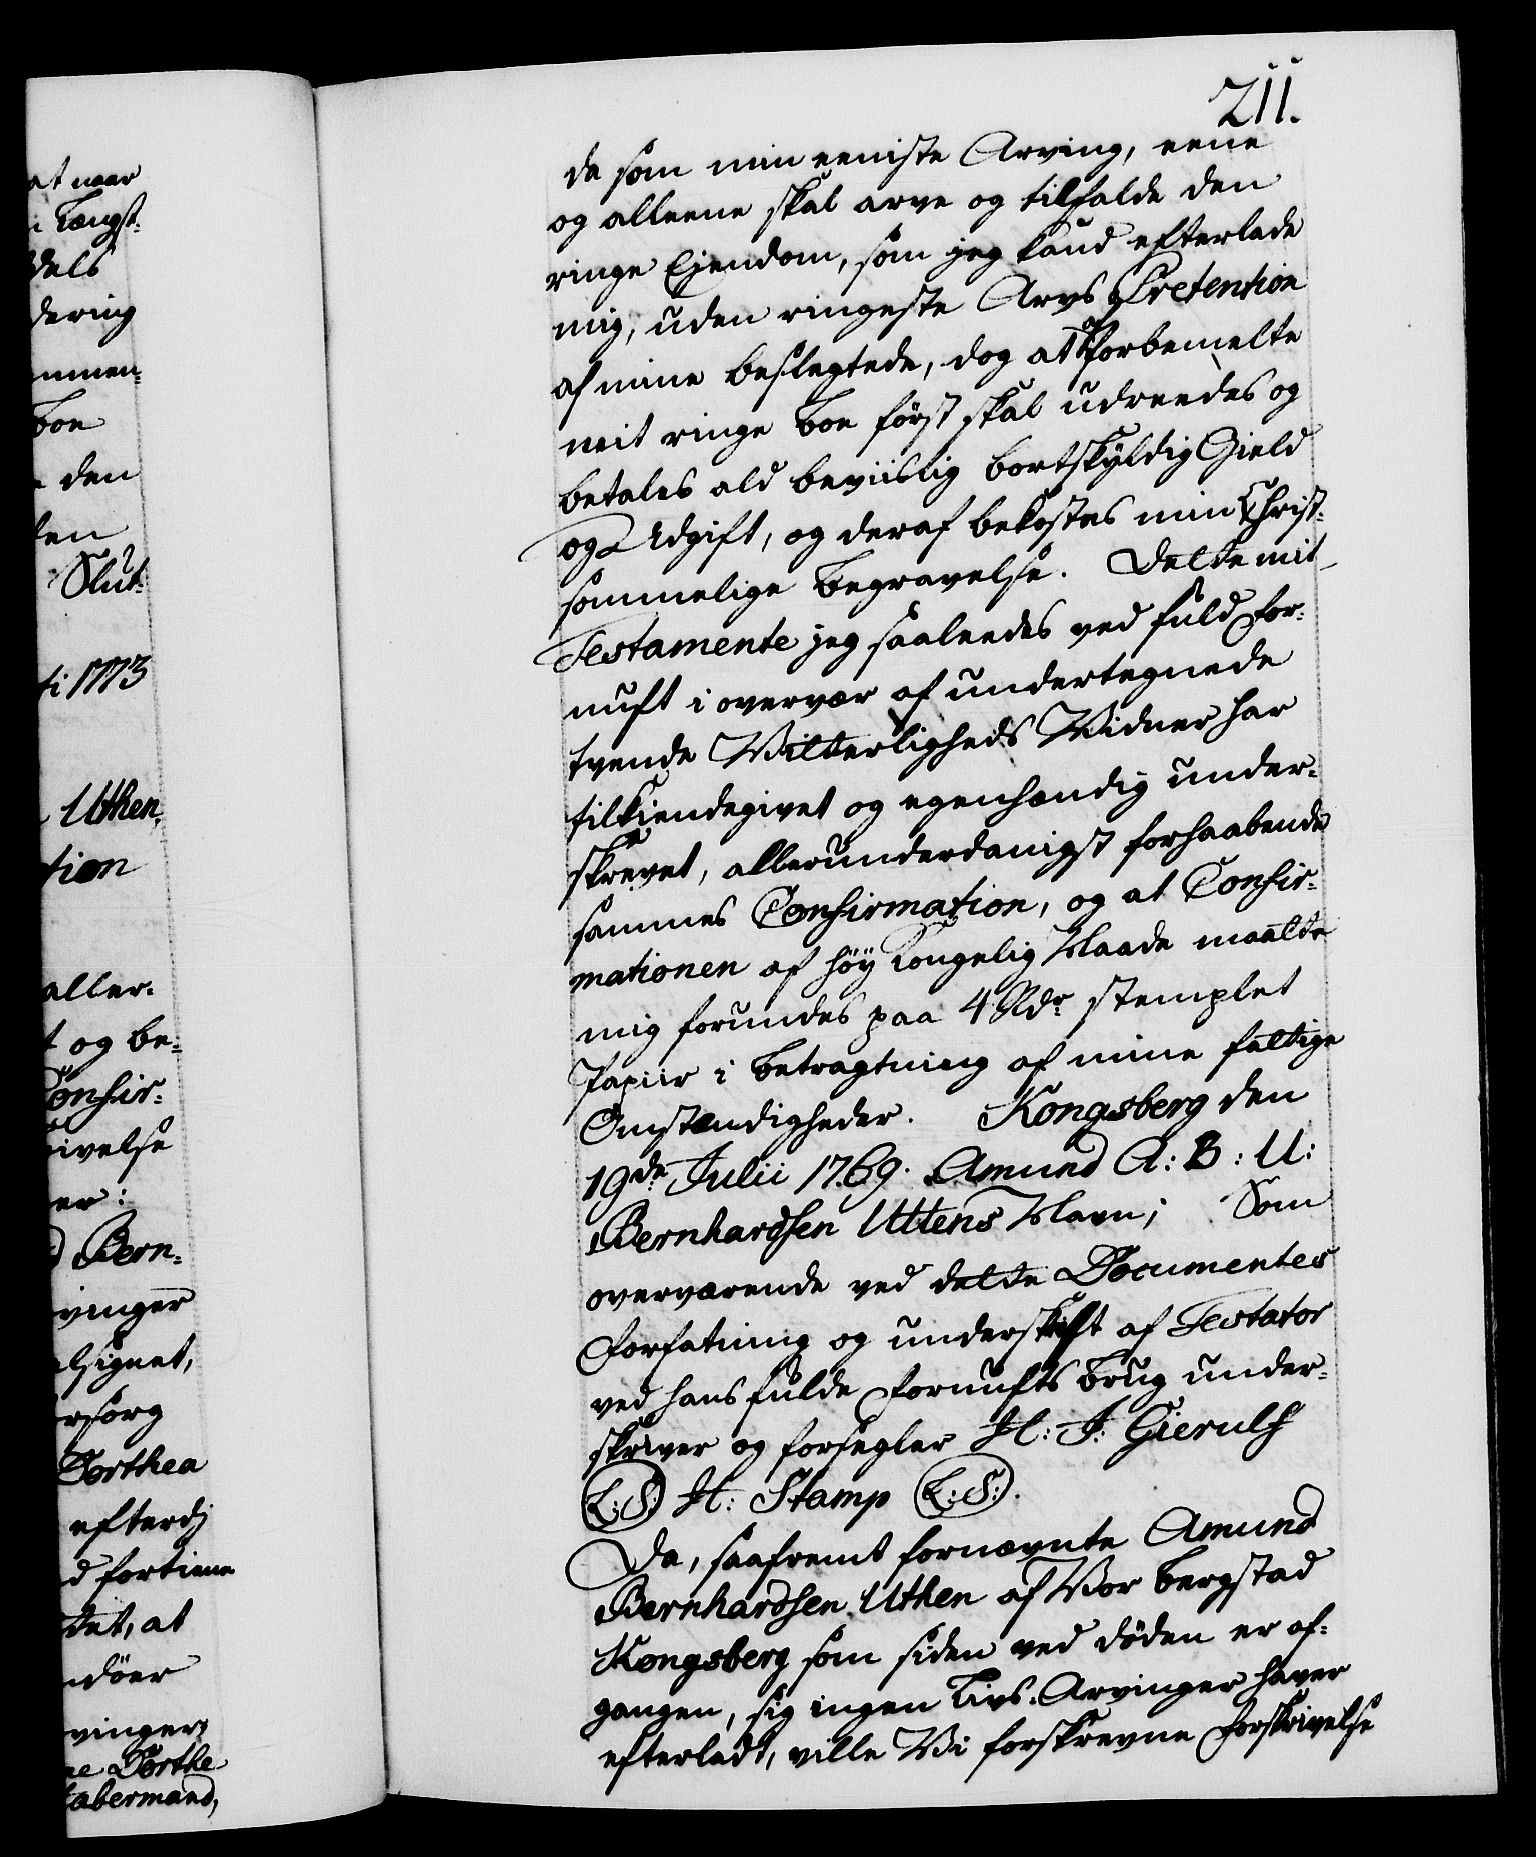 211.
da som min eeniste Arving, eene
og alleene skal arve og tilfalde den
ringe Ejendom, som jeg kand efterlade
mig, uden ringeste Arvs Prætention
af mine beslegtede, dog at af forbemelte
mit ringe Boe først skal udreedes og
betales ald beviislig bortskyldig Gield
og Udgift, og deraf bekostes min Christ-
sommelige Begravelse. Dette mit
Testamente jeg saaleedes ved fuld For-
nuft i overvær af undertegnede
tvende Vitterligheds Vidner har
tilkiendegivet og egenhændig under-
skrevet, allerunderdanigst forhaabende
sammes Confirmation, og at Confir-
mationen af høy Kongelig Naade maatte
mig forundes paa 4 Rdr stemplet
Papiir i Betragtning af mine fattige
Omstændigheder. Kongsberg den
19de Julii 1769. Amund A: B: U:
Bernhardsen Uttens Navn; Som
overværende ved dette Documentes
Forfatning og underskrift af Testator
ved hans fulde Fornufts Brug under-
skriver og forsegler H: J: Gierulf
(L:S:) H: Stamp (L:S:).
Da, saafremt fornævnte Amund
Bernhardsen Uthen af Vor Bergstad
Kongsberg som siden ved døden er af-
gangen, sig ingen Livs-Arvinger haver
efterladt, ville Vi forskrevne Forskrivelse
at naar
Længst-
dels
dering
ommen-
Boe
den
den
Slut-
ti 1773
Uthen,
tion
aller-
t og be-
Confir-
ivelse
er:
Bern-
vinger
lsignet,
rsørg
Dorthea
efterdj
d fortiene
det, at
døer
vinger,
ne Dorthe
tabermand,